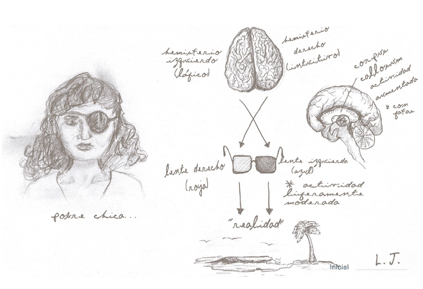 hemisferio
izquierdo
(lógico)
hemisferio
derecho
(intuitivo)
corpus
callosum
actividad
aumentada
pobre chica...
lente derecho
(roja)
lente izquierdo
(azul)
* actividad
ligeramente
moderada
"realidad"
Inicial
L.J.